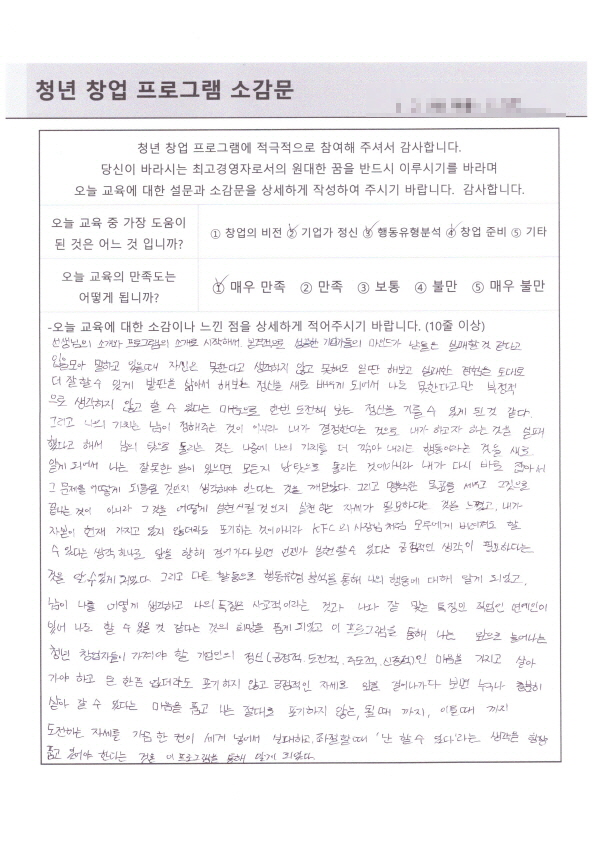 청년 창업 프로그램 소감문
청년 창업 프로그램에 적극적으로 참여해 주셔서 감사합니다.
당신이 바라시는 최고경영자로서의 원대한 꿈을 반드시 이루시기를 바라며
오늘 교육에 대한 설문과 소감문을 상세하게 작성하여 주시기 바랍니다. 감사합니다.
오늘 교육 중 가장 도움이
된 것은 어느 것 입니까?
① 창업의 비전 ② 기업가 정신 ③ 행동유형분석 ④ 창업 준비 ⑤ 기타
오늘 교육의 만족도는
어떻게 됩니까?
① 매우 만족 ② 만족 ③ 보통 ④ 불만 ⑤ 매우 불만
-오늘 교육에 대한 소감이나 느낀 점을 상세하게 적어주시기 바랍니다. (10줄 이상)
선생님의 소개와 프로그램의 소개로 시작해서, 본격적으로 성공한 기업가들의 마인드가 남들은 실패할 것 같다고
입을모아 말하고 있을때 자신은 못한다고 생각하지 않고 못해도 일단 해보고 실패한 경험을 토대로
더 잘할 수 있게 발판을 삼아서 해보는 정신을 새로 배우게 되어서 나는 못한다고만 부정적
으로 생각하지 않고 할 수 있다는 마음으로 한번 도전해 보는 정신을 기를 수 있게 된 것 같다.
그리고 나의 가치는 남이 정해주는 것이 아니라 내가 결정한다는 것으로 내가 하고자 하는 것을 실패
했다고 해서 남의 탓으로 돌리는 것은 나중에 나의 가치를 더 깎아 내리는 행동이라는 것을 새로
알게 되어서 나는 잘못한 일이 있으면 모든지 남 탓으로 돌리는 것이아니라 내가 다시 바로 잡아서
그 문제를 어떻게 되돌릴 것인지 생각해야 한다는 것을 깨달았다. 그리고 명확한 목표를 세우고 그것으로
끝나는 것이 아니라 그것을 어떻게 실현시킬 것인지 실천하는 자세가 필요하다는 것을 느꼈고, 내가
자본이 현재 가지고 있지 않더라도 포기하는 것이아니라 KFC의 사장님처럼 모두에게 비난받아도 할
수 있다는 생각 하나로 앞을 향해 걸어가다 보면 언젠가 실현할 수 있다는 긍정적인 생각이 필요하다는
것을 알 수 있게 되었다. 그리고 다른 활동으로 행동유형 분석을 통해 나의 행동에 대해 알게 되었고,
남이 나를 어떻게 생각하고 나의 특징은 사교적이라는 것과 나와 잘 맞는 특징의 직업인 연예인이
있어 나도 할 수 있을 것 같다는 것의 희망을 품게 되었고 이 프로그램을 통해 나는 앞으로 늘어나는
청년 창업자들이 가져야 할 기업인의 정신(긍정적, 도전적, 주도적, 신중적)인 마음을 가지고 살아
가야 하고 돈 한푼 없더라도 포기하지 않고 긍정적인 자세로 앞을 걸어나가다 보면 누구나 충분히
살아 갈 수 있다는 마음을 품고 나는 절대로 포기하지 않는, 될 때 까지, 이룰때 까지
도전하는 자세를 가슴 한 켠에 새겨 넣어서 실패하고, 좌절할때 '난 할 수 있다' 라는 생각을 항상
품고 있어야 한다는 것을 이 프로그램을 통해 알게 되었다.